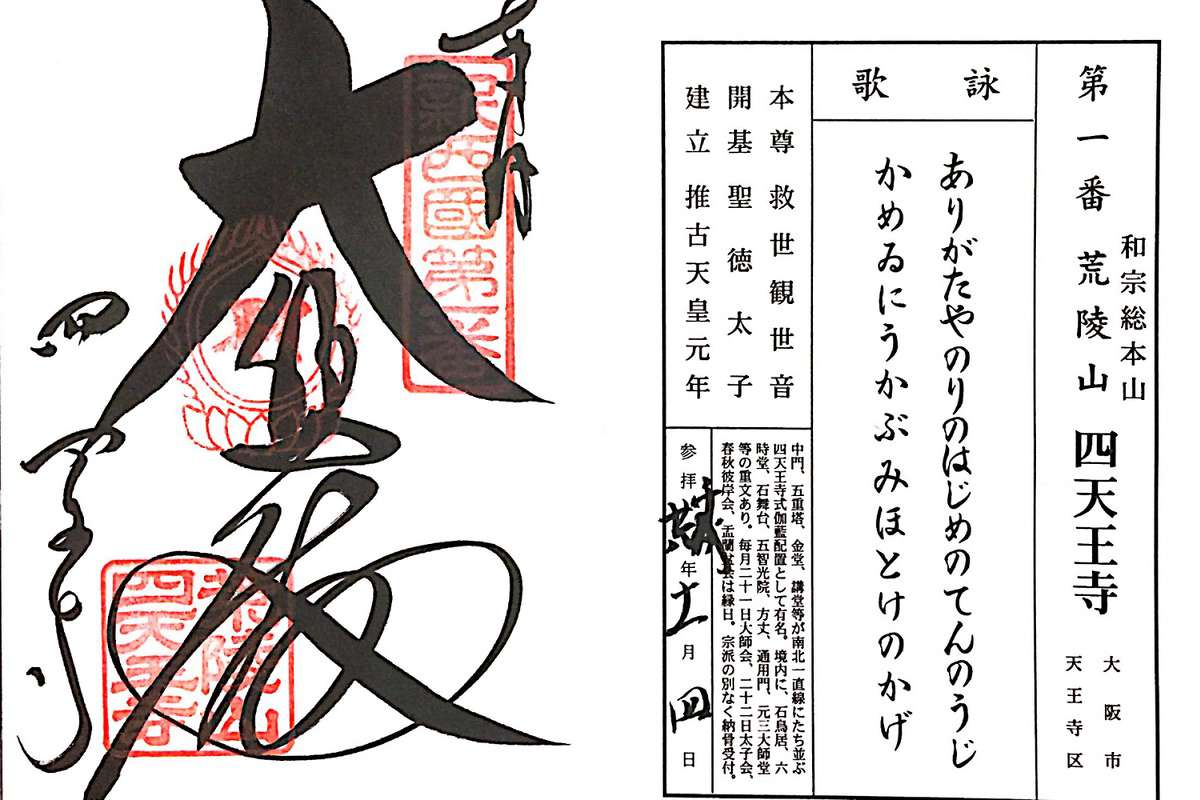 和宗総本山
第一番 荒陵山 四天王寺
大阪市
天王寺区
詠歌
ありがたやのりのはじめのてんのうじ
かめゐにうかぶみほとけのかげ
本尊 救世観世音
開基 聖徳太子
建立 推古天皇元年
中門、五重塔、金堂、講堂等が南北一直線にたち並ぶ
四天王寺式伽藍配置として有名。境内に、石鳥居、六
時堂、石舞台、五智光院、方丈、通用門、元三大師堂
等の重文あり。毎月二十一日大師会、二十二日太子会、
春秋彼岸会、盂蘭盆会は縁日。宗派の別なく納骨受付。
参拝 年 十一月 四日
奉拝
新西國第一番
大悲殿
四天王寺
荒陵山
四天王寺